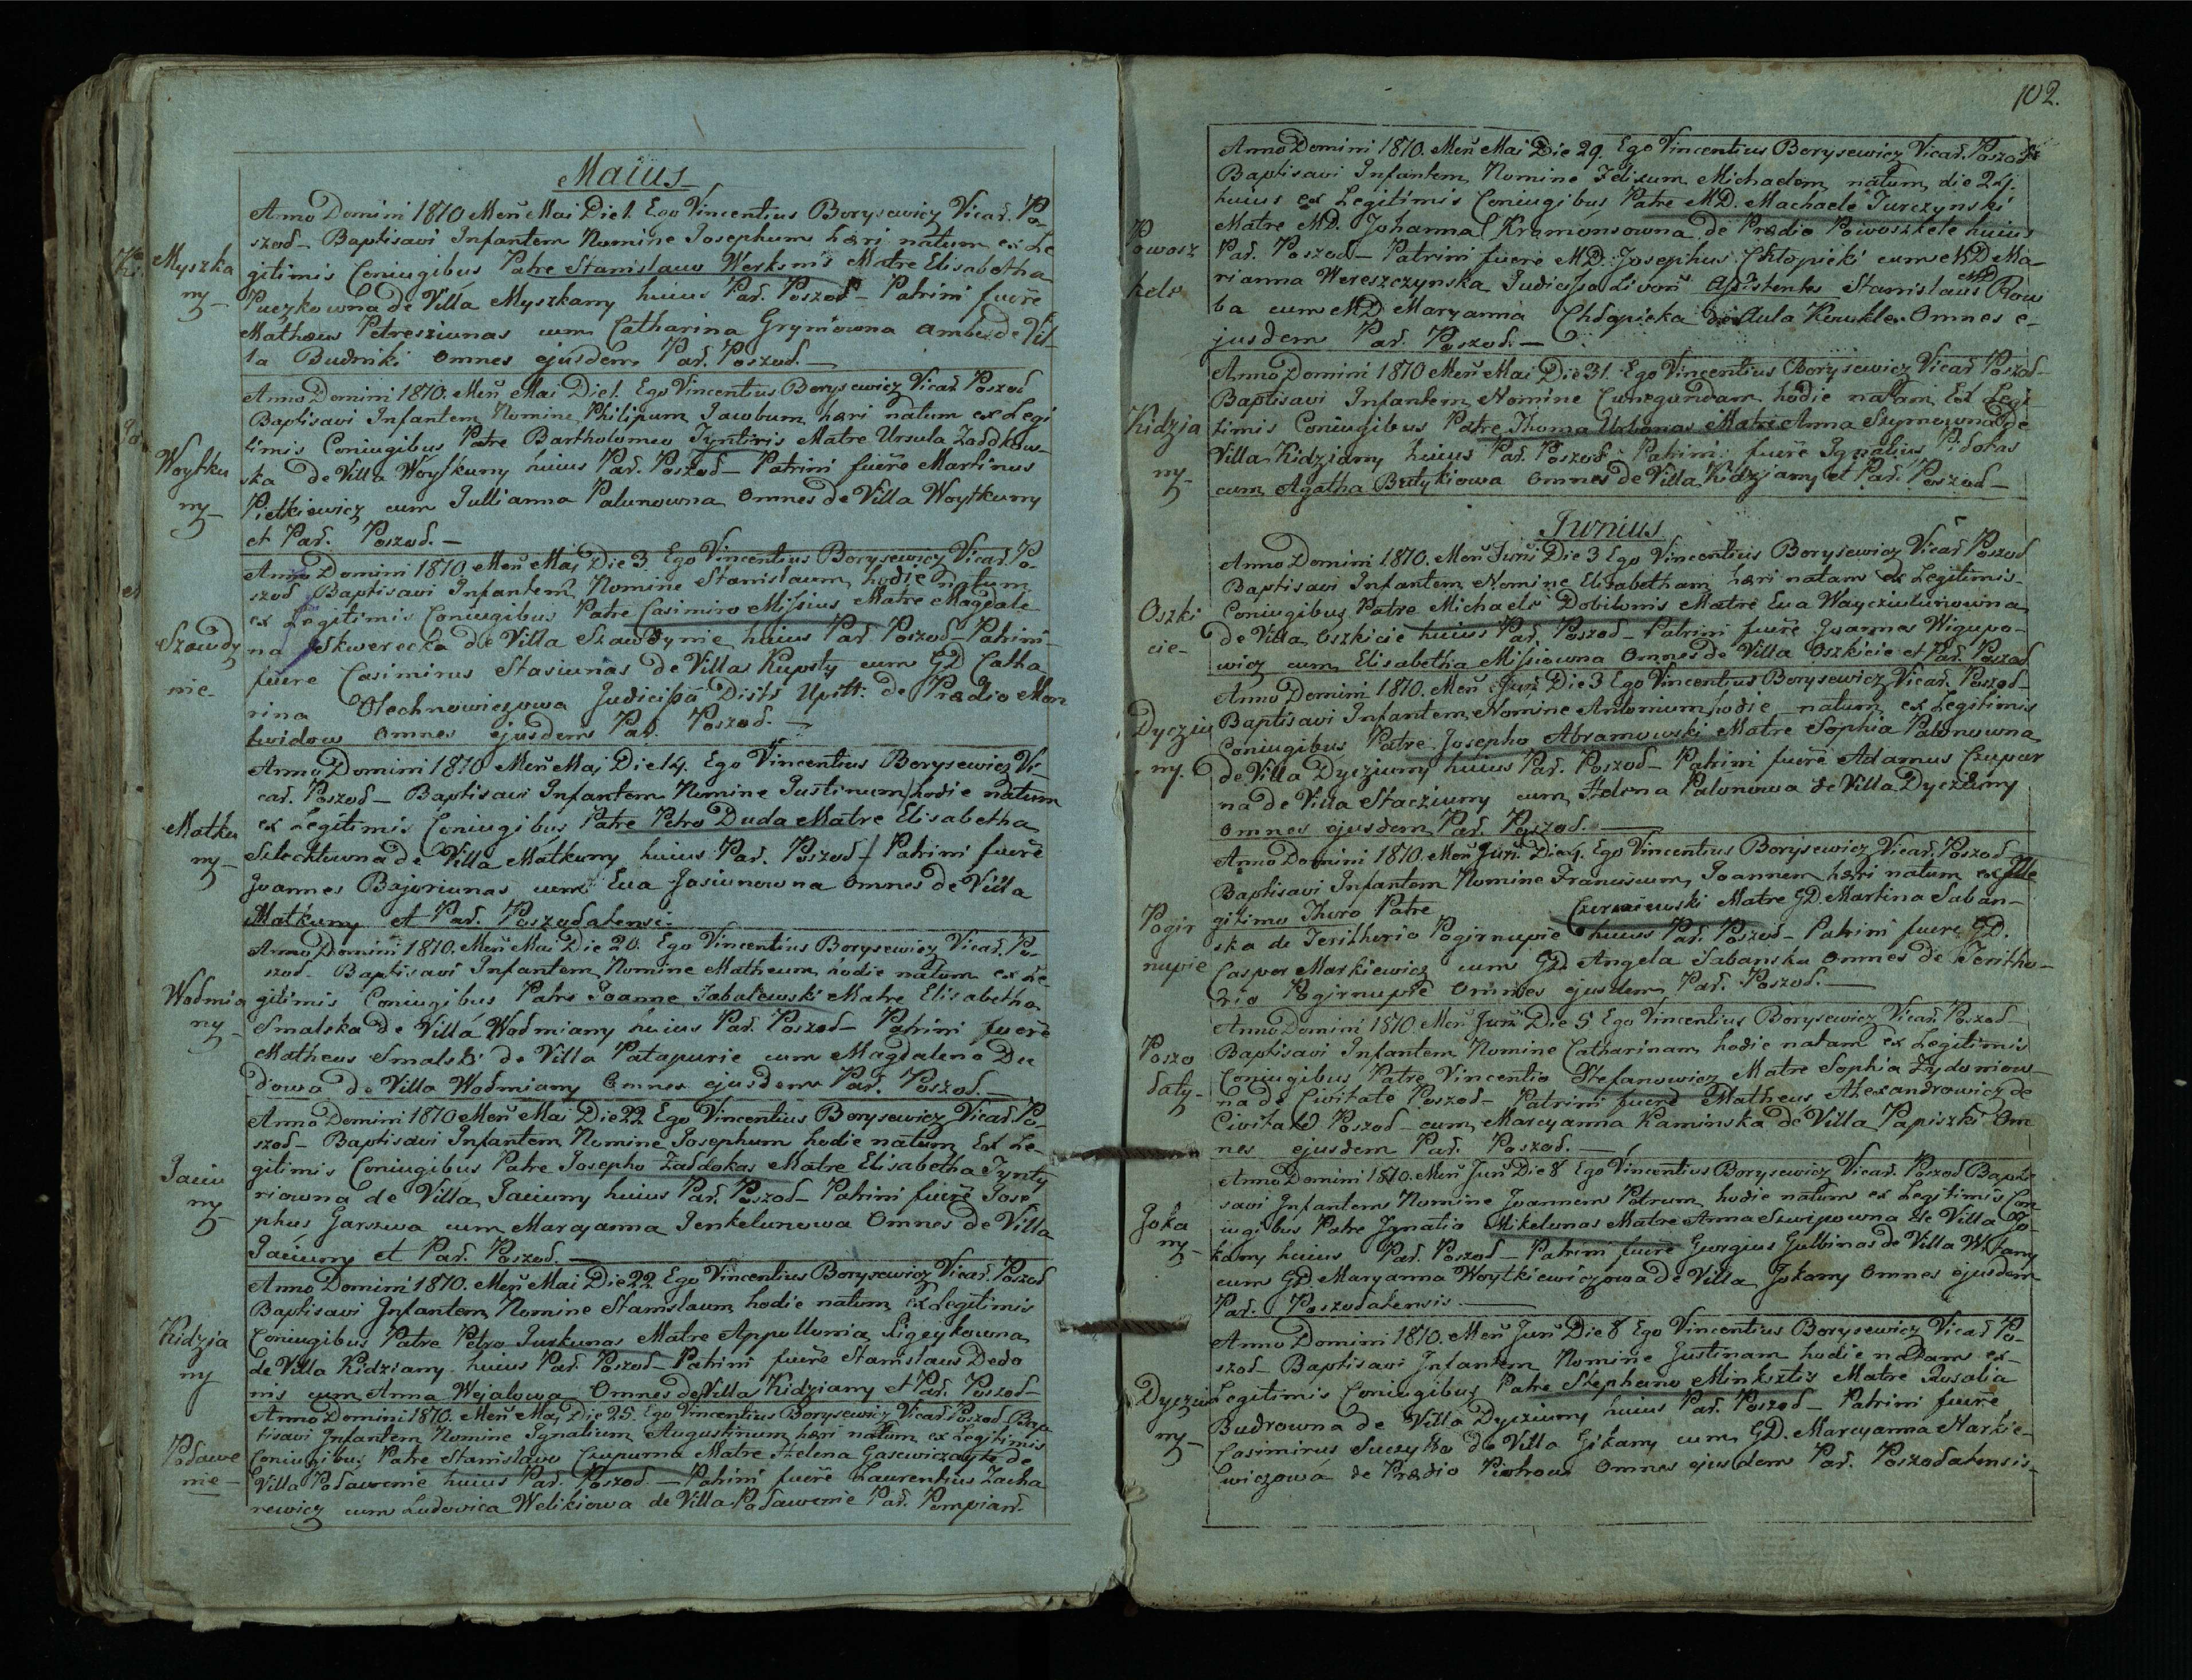 Maius
Myszka
ny
Anno Domini 1810 Men̄ Mai Die 1. Ego Vincentius Borysewicz Vicar̄. Po-
szod– Baptisavi Infantem Nomine Josephum hæri natum ex Le
gitimis Coniugibus Patre Stanislauo Werksnis Matre Elisabetha
Puczkowna de Villa Myszkany huius Par̄. Poszod– Patrini fuere
Mathæus Petresziunas cum Catharina Grymowna ambe de Vil
la Budniki Omnes ejusdem Par̄. Poszod.–
Woytku
ny
Anno Domini 1810. Men̄ Mai Die 1. Ego Vincentius Borysewicz Vicar̄ Poszod
Baptisavi Infantem Nomine Philipum Jacobum hæri natum ex Legi
timis Coniugibus Patre Bartholomeo Tyntiris Matre Ursula Zaddkow-
ska de Villa Woytkuny huius Par̄. Poszod– Patrini fuere Martinus
Pietkiewicz cum Jullianna Palunowna Omnes de Villa Woytkuny
et Par̄. Poszod.–
Szawdy
nie
Anno Domini 1810. Men̄ Maj Die 3. Ego Vincentius Borysewicz Vicar̄. Po-
szod Baptisavi Infantem Nomine Stanislaum hodie natum
ex Legitimis Coniugibus Patre Casimiro Missius Matre Magdale
na Skwerecka de Villa Szawdynie huius Par̄ Poszod– Patrini
fuere Casimirus Stasiunas de Villa Kupsty cum GD Catha
rina Olechnowiczowa Judicissa Distr Upitt: de Prædio Mon
twidow Omnes ejusdem Par̄. Poszod.–
Matku
ny
Anno Domini 1810 Men̄ Maj Die 14. Ego Vincentius Borysewicz Vi-
car̄. Poszod– Baptisavi Infantem Nomine Justinum hodie natum
ex Legitimis Coniugibus Patre Petro Duda Matre Elisabetha
Szlecktowna de Villa Matkuny huius Par̄. Poszod– Patrini fuere
Joannes Bajoriunas cum Eua Jasiunowna Omnes de Villa
Matkuny et Par̄. Poszodatensi.
Wodmia
ny
Anno Domini 1810. Men̄ Mai Die 20. Ego Vincentius Borysewicz Vicar̄. Po-
szod– Baptisavi Infantem Nomine Matheum hodie natum ex Le-
gitimis Coniugibus Patre Joanne Jabulewski Matre Elisabetha
Smalska de Villa Wodmiany huius Par̄. Poszod– Patrini fuere
Matheus Smalski de Villa Patapurie cum Magdalena Du
dowa de Villa Wodmiany Omnes ejusdem Par̄. Poszod.–
Jaciu
ny
Anno Domini 1810 Men̄ Mai Die 22 Ego Vincentius Borysewicz Vicar̄ Po-
szod– Baptisavi Infantem Nomine Josephum hodie natum Ex Le-
gitimis Coniugibus Patre Josepho Zaddokas Matre Elisabetha Tynty
riowna de Villa Jaciuny huius Par̄. Poszod– Patrini fuere Jose
phus Garszwa cum Maryanna Jenkelunowa Omnes de Villa
Jaciuny et Par̄. Poszod.–
Kidzia
ny
Anno Domini 1810. Men̄ Mai Die 22 Ego Vincentius Borysewicz Vicar̄. Poszod
Baptisavi Infantem Nomine Stanislaum hodie natum ex Legitimis
Coniugibus Patre Petro Jurkunas Matre Appollonia Ligeykowna
de Villa Kidziany huius Par̄ Poszod– Patrini fuere Stanislaus Dedo
nis cum Anna Wejalowa Omnes de Villa Kidziany et Par̄. Poszod–
Podawe
nie
Anno Domini 1810. Men̄ Maj Die 25. Ego Vincentius Borysewicz Vicar̄ Poszod– Bap
tisavi Infantem Nomine Ignatium Augustinum hæri natum ex Legitimis
Coniugibus Patre Stanislavo Czupurna Matre Helena Gasewiczayte de
Villa Podawenie huius Par̄. Poszod– Patrini fuere Laurentius Zacha
rewicz cum Ludovica Welikiowa de Villa Podawenie Par̄. Pompian̄.
102.
Powosz
kele
Anno Domini 1810. Men̄ Mai Die 29. Ego Vincentius Borysewicz Vicar̄. Poszod
Baptisavi Infantem Nomine Felixum Michaelem natum die 24.
huius ex Legitimis Coniugibus Patre MD. Machaele Jurczynski
Matre MD. Johanna Kramonsowna de Prædio Powoszkele huius
Par̄. Poszod– Patrini fuere MD. Josephus Chłopicki cum MD Ma-
rianna Wereszczynska Judicissa Livon̄ Assistentes Stanislaus MD Row
ba cum MD Maryanna Chłopicka de Aula Kowkle Omnes e-
jusdem Par̄. Poszod.–
Kidzia
ny
Anno Domini 1810 Men̄ Mai Die 31. Ego Vincentius Borysewicz Vicar̄ Poszod–
Baptisavi Infantem Nomine Cunegundam hodie natam Ex Legi
timis Coniugibus Patre Thoma Urbonas Matre Anna Szymczowna de
Villa Kidziany huius Par̄. Poszod– Patrini fuere Ignatius Pidokas
cum Agatha Butykiowa Omnes de Villa Kidziany et Par̄. Poszod–
Junius
Oszki
cie
Anno Domini 1810. Men̄ Juni Die 3 Ego Vincentius Borysewicz Vicar̄ Poszod
Baptisavi Infantem Nomine Elisabetham hæri natam ex Legitimis
Coniugibus Patre Michaele Dobilonis Matre Eua Wayciulunowna
de Villa Oszkicie huius Par̄. Poszod– Patrini fuere Joannes Wigupo-
wicz cum Elisabetha Missiowna Omnes de Villa Oszkicie et Par̄. Poszod
Dycziu
ny.
Anno Domini 1810. Men̄ Jun̄ Die 3 Ego Vincentius Borysewicz Vicar̄. Poszod–
Baptisavi Infantem Nomine Antonium hodie natum ex Legitimis
Coniugibus Patre Josepho Abramowski Matre Sophia Palonowna
de Villa Dycziuny huius Par̄. Poszod– Patrini fuere Adamus Czupur
na de Villa Stacziuny cum Helena Palonowa de Villa Dycziuny
Omnes ejusdem Par̄. Poszod.–
Pogir
nupie
Anno Domini 1810. Men̄ Jun̄ Die 4. Ego Vincentius Borysewicz Vicar̄. Poszod
Baptisavi Infantem Nomine Franciscum Joannem hæri natum ex Ille
gitimo Thoro Patre Czerniewski Matre GD. Martina Saban-
ska de Teritherio Pogirnupie huius Par̄. Poszod– Patrini fuere GD.
Casper Markiewicz cum GD. Angela Sabanska Omnes de Teritho-
rio Pogirnupie Omnes ejusdem Par̄. Poszod.–
Poszo
daty
Anno Domini 1810. Men̄ Jun̄ Die 5 Ego Vincentius Borysewicz Vicar̄. Poszod–
Baptisavi Infantem Nomine Catharinam hodie natam ex Legitimis
Coniugibus Patre Vincentio Stefanowicz Matre Sophia Zydoniow-
na de Civitate Poszod– Patrini fuere Matheus Alexandrowicz de
Civitate Poszod– cum Maryanna Kaminska de Villa Papiszki Om
nes ejusdem Par̄. Poszod.–
Joka
ny
Anno Domini 1810. Men̄ Jun̄ Die 8 Ego Vincentius Borysewicz Vicar̄. Poszod Bapti
savi Infantem Nomine Joannem Petrum hodie natum ex Legitimis Con
iugibus Patre Ignatio Mikelunas Matre Anna Szwipowna de Villa Jo-
kany huius Par̄. Poszod– Patrini fuere Georgius Gulbinas de Villa
cum GD. Maryanna Woytkiewiczowa de Villa Jokany Omnes ejusdem
Par̄. Poszodatensis.–
Dycziu
ny
Anno Domini 1810. Men̄ Jun̄ Die 8 Ego Vincentius Borysewicz Vicar̄ Po-
szod– Baptisavi Infantem Nomine Justinam hodie natam ex–
Legitimis Coniugibus Patre Stephano Minksztis Matre Rosalia
Budrowna de Villa Dycziuny huius Par̄. Poszod– Patrini fuere
Casimirus Suczyłło de Villa Gikany cum GD. Maryanna Narkie-
wiczowa de Prædio Piotrow Omnes ejusdem Par̄. Poszodatensis–